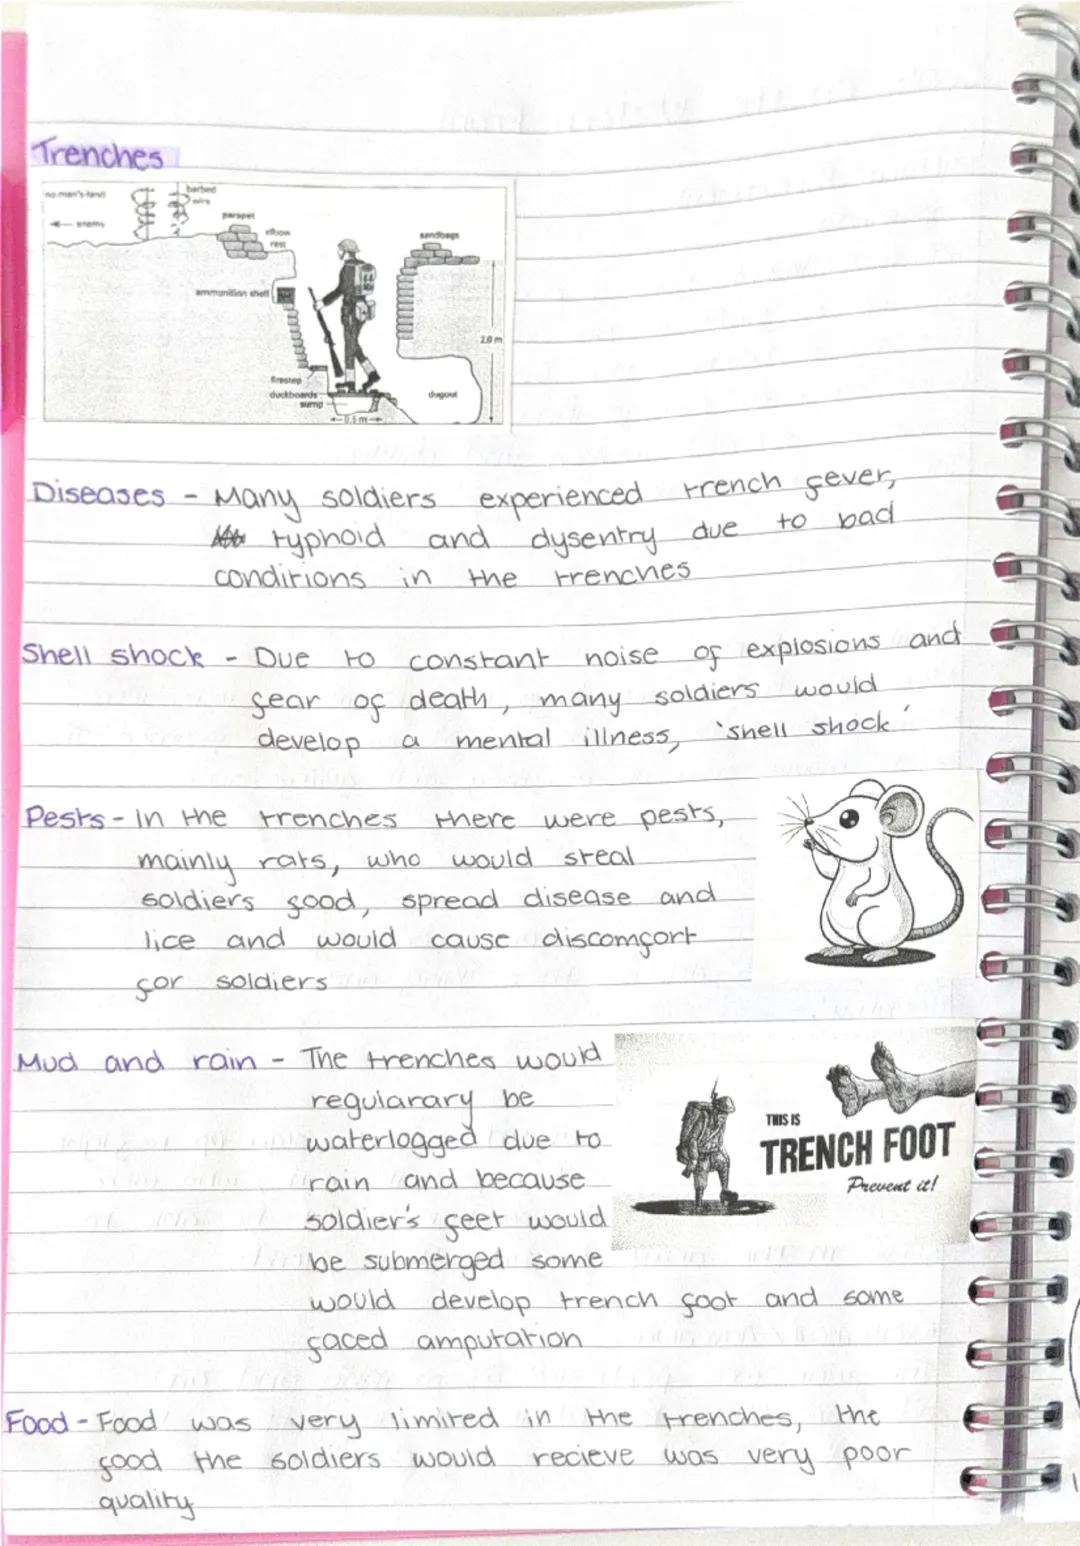 Trenches
no-man's-land
barbed
wire
enemy
parapet
elbow
rest
sandbags
ammunition shelf
2.0 m
firestep
duckboards
sump
dugout
0.5 m
Diseases - Many soldiers experienced trench fever,
typhoid and dysentry due to bad
conditions in the trenches
Shell shock - Due to constant noise of explosions and
fear of death, many soldiers would
develop a mental illness, 'shell shock'
Pests - In the trenches there were pests,
mainly rats, who would steal
soldiers food, spread disease and
lice and would cause discomfort
for soldiers
Mud and rain - The trenches would
regularary be
waterlogged due to
rain and because
soldier's feet would
be submerged some
would develop trench foot and some
faced amputation
THIS IS
TRENCH FOOT
Prevent it!
Food - Food was very limited in the trenches, the
food the soldiers would recieve was very poor
quality